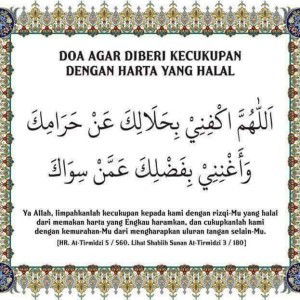 DOA AGAR DIBERI KECUKUPAN
DENGAN HARTA YANG HALAL
اَللَّهُمَّ اكْفِنِيْ بِحَلَالِكَ عَنْ حَرَامِكَ
وَأَغْنِنِيْ بِفَضْلِكَ عَمَّنْ سِوَاكَ
Ya Allah, limpahkanlah kecukupan kepada kami dengan rizqi-Mu yang halal
dari memakan harta yang Engkau haramkan, dan cukupkanlah kami
dengan kemurahan-Mu dari mengharapkan uluran tangan selain-Mu.
[HR. At-Tirmidzi 5 / 560. Lihat Shahiih Sunan At-Tirmidzi 3 / 180]